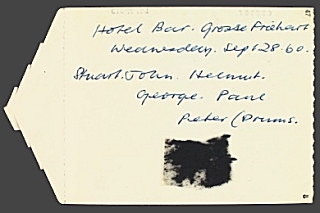 Hotel Bar. Grosse Friehart
Wednesday. Sept 28. 60.
Stuart. John. Helmut.
George. Paul
Peter (Drums.